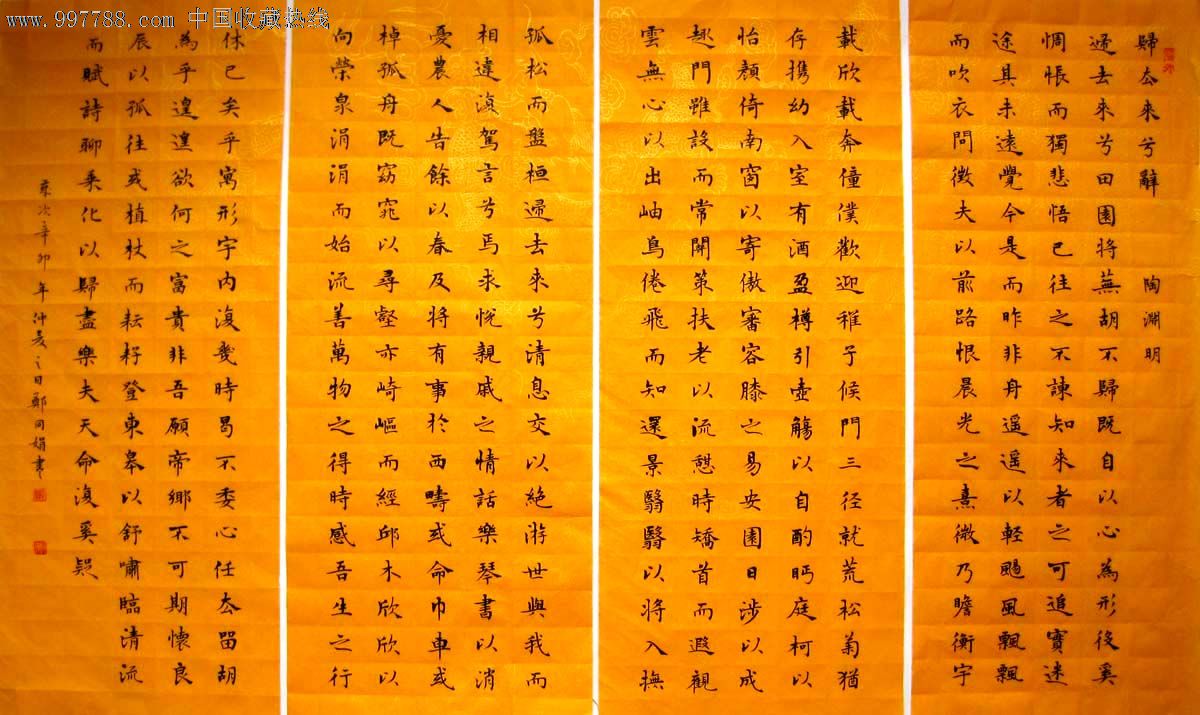 www.997788.com 中国收藏热线
歸去來兮辭 陶淵明
歸去來兮田園將蕪胡不歸既自以心為形役奚
惆悵而獨悲悟已往之不諫知來者之可追實迷
途其未遠覺今是而昨非舟遙遙以輕颺風飄飄
而吹衣問徵夫以前路恨晨光之熹微乃瞻衡宇
載欣載奔僮僕歡迎稚子候門三径就荒松菊猶
存携幼入室有酒盈樽引壺觴以自酌眄庭柯以
怡顏倚南窗以寄傲審容膝之易安園日涉以成
趣門雖設而常關策扶老以流憩時矯首而遐觀
雲無心以出岫鳥倦飛而知還景翳翳以將入撫
孤松而盤桓歸去來兮清息交以絕游世與我而
相違復駕言兮焉求悅親戚之情話樂琴書以消
憂農人告餘以春及將有事於西疇或命巾車或
棹孤舟既窈窕以尋壑亦崎嶇而經邱木欣欣以
向榮泉涓涓而始流善萬物之得時感吾生之行
休已矣乎寓形宇內復幾時曷不委心任去留胡
為乎遑遑欲何之富貴非吾願帝鄉不可期懷良
辰以孤往或植杖而耘耔登東皋以舒嘯臨清流
而賦詩聊乘化以歸盡樂夫天命復奚疑
歲次辛卯年仲夏之日鄭同娟書